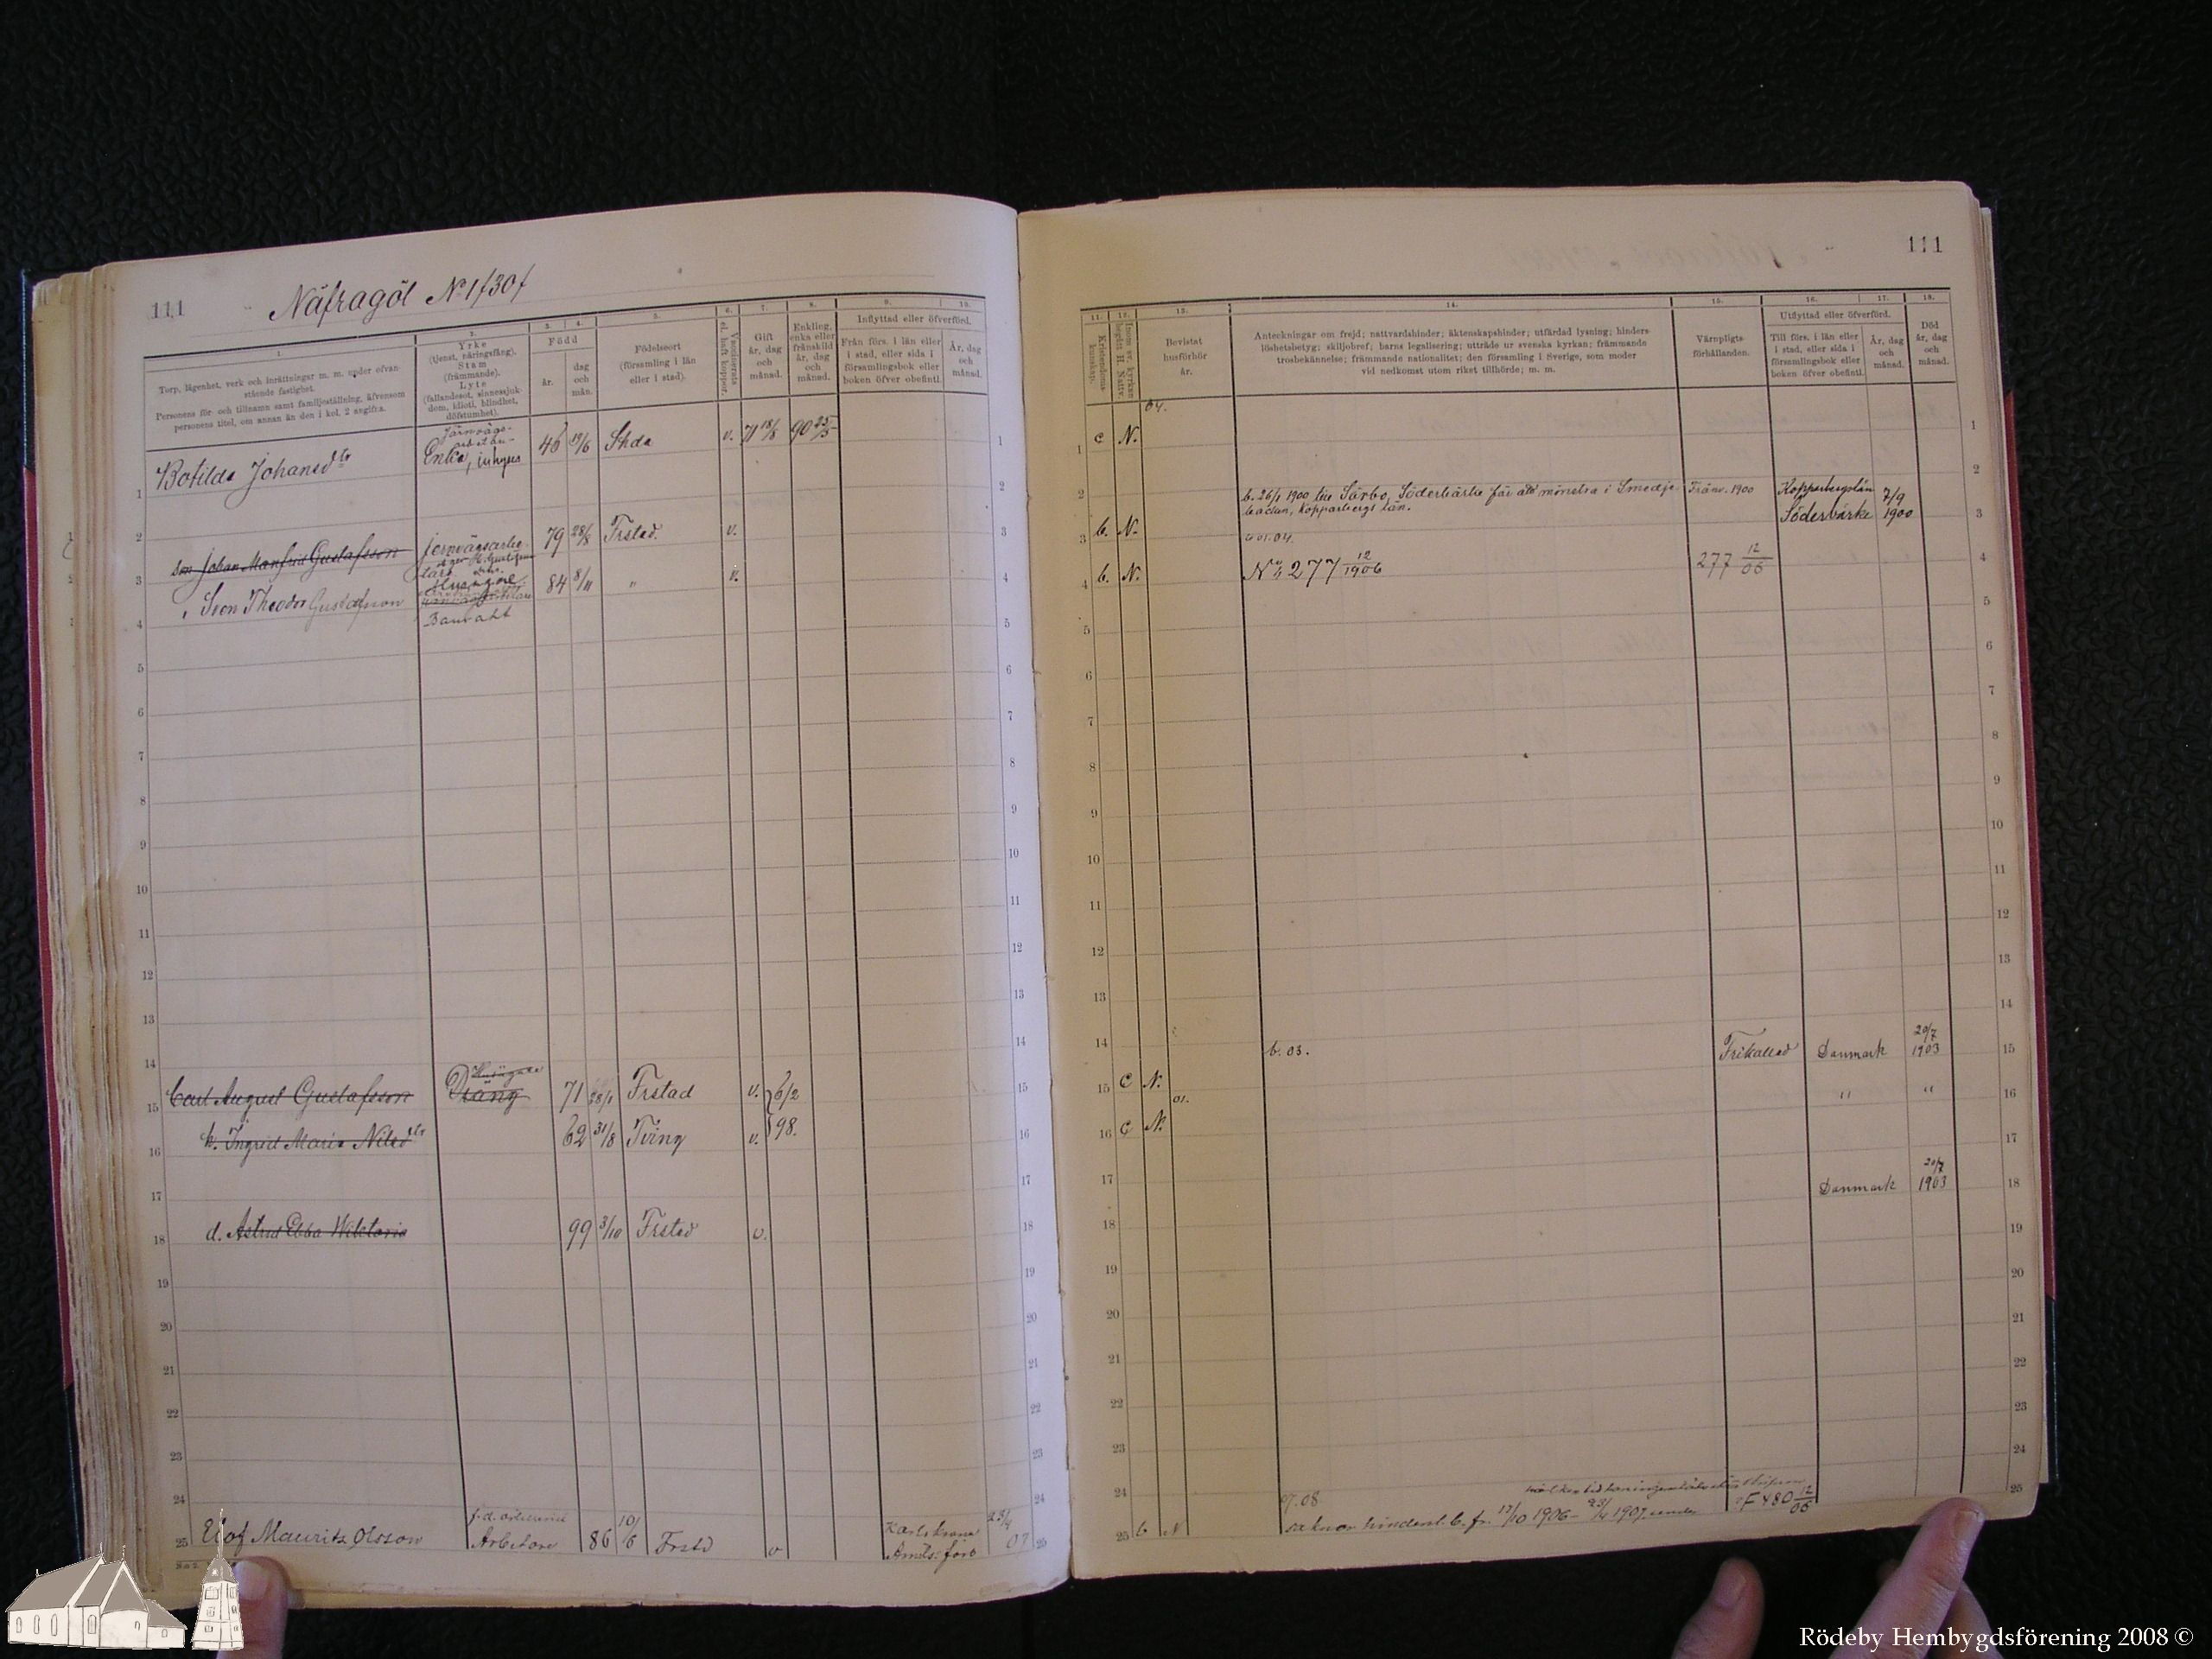 111
Näfragöl No 1 f 30 f
1.
Torp, lägenhet, verk och inrättningar m. m. under ofvan-
stående fastighet.
Personens för- och tillnamn samt familjeställning, äfvensom
personens titel, om annan än den i kol. 2 angifna.
2.
Yrke
(tjenst, näringsfång).
Stam
(främmande).
Lyte
(fallandesot, sinnessjuk-
dom, idioti, blindhet,
döfstumhet).
3. 4.
Född
år.
dag
och
mån.
5.
Födelseort
(församling i län
eller i stad).
6.
Vaccinerats
el. haft koppor.
7.
Gift
år, dag
och
månad.
8.
Enkling,
enka eller
frånskild
år, dag
och
månad.
9. 10.
Inflyttad eller öfverförd.
Från förs. i län eller
i stad, eller sida i
församlingsbok eller
boken öfver obefintl.
År, dag
och
månad.
1 Botilda Johansdtr Järnvägs-
arbetar-
Enka, inhyses 46 19/6 Shda v. 71 18/8 90 25/5 1
2 2
3 son Johan Manfrid Gustafsson jernvägsarbe-
tare 79 28/8 Frstad. v. 3
4 " Sven Theodor Gustafsson Husägare
Banvakt 84 8/11 " v. 4
5 5
6 6
7 7
8 8
9 9
10 10
11 11
12 12
13 13
14 14
15 Carl August Gustafsson Husägare
Dräng 71 28/1 Frstad v. 6/2 15
16 h. Ingrid Maria Nilsdtr 62 31/8 Tving v. 98. 16
17 17
18 d. Astrid Ebba Wiktoria 99 3/10 Frstad v. 18
19 19
20 20
21 21
22 22
23 23
24 24
25 Elof Mauritz Olsson f.d. artillerist
Arbetare 86 10/6 Frstd v Karlskrona
Amils: förs 23/4
07 25
111
11.
Kristendoms-
kunskap.
12.
Inom sv. kyrkan
begått H. Nattv.
13.
Bevistat
husförhör
år.
14.
Anteckningar om frejd; nattvardshinder; äktenskapshinder; utfärdad lysning; hinders-
löshetsbetyg; skiljobref; barns legalisering; utträde ur svenska kyrkan; främmande
trosbekännelse; främmande nationalitet; den församling i Sverige, som moder
vid nedkomst utom riket tillhörde; m. m.
15.
Värnpligts-
förhållanden.
16. 17.
Utflyttad eller öfverförd.
Till förs. i län eller
i stad, eller sida i
församlingsbok eller
boken öfver obefintl.
År, dag
och
månad.
18.
Död
år, dag
och
månad.
04.
1 c N. 1
2 2
3 b. N. b. 26/1 1900 Särbo, Söderbärke får att mönstra i Smedje-
backen, Kopparbergs län. Tränv. 1900 Kopparbergs län
Söderbärke 7/9
1900 3
01. 04.
4 b. N. No 277 12/1906 277 12/06 4
5 5
6 6
7 7
8 8
9 9
10 10
11 11
12 12
13 13
14 14
15 c N. b. 03. Frikallad Danmark 20/7
1903 15
01.
16 c N. " " 16
17 17
18 Danmark 20/7
1903 18
19 19
20 20
21 21
22 22
23 23
24 07. 08 24
25 b N saknar hindersl. b. fr. 17/10 1906 - 23/4 1907 F 480 12/06 25
Rödeby Hembygdsförening 2008 ©